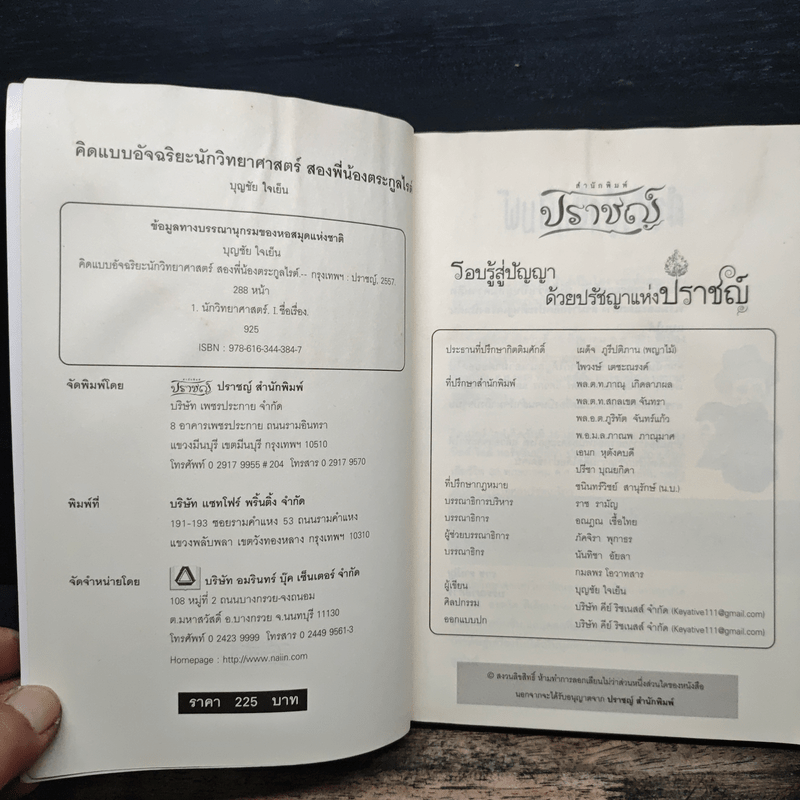 คิดแบบอัจฉริยะนักวิทยาศาสตร์ สองพี่น้องตระกูลไรต์
บุญชัย ใจเย็น
ข้อมูลทางบรรณานุกรมของหอสมุดแห่งชาติ
บุญชัย ใจเย็น
คิดแบบอัจฉริยะนักวิทยาศาสตร์ สองพี่น้องตระกูลไรต์.-- กรุงเทพฯ : ปราชญ์, 2557.
288 หน้า
1. นักวิทยาศาสตร์. I. ชื่อเรื่อง.
925
ISBN : 978-616-344-384-7
จัดพิมพ์โดย ปราชญ์ ปราชญ์ สำนักพิมพ์
บริษัท เพชรประกาย จำกัด
8 อาคารเพชรประกาย ถนนรามอินทรา
แขวงมีนบุรี เขตมีนบุรี กรุงเทพฯ 10510
โทรศัพท์ 0 2917 9955 # 204 โทรสาร 0 2917 9570
พิมพ์ที่ บริษัท แซทโฟร์ พริ้นติ้ง จำกัด
191-193 ซอยรามคำแหง 53 ถนนรามคำแหง
แขวงพลับพลา เขตวังทองหลาง กรุงเทพฯ 10310
จัดจำหน่ายโดย บริษัท อมรินทร์ บุ๊ค เซ็นเตอร์ จำกัด
108 หมู่ที่ 2 ถนนบางกรวย-จงถนอม
ต.มหาสวัสดิ์ อ.บางกรวย จ.นนทบุรี 11130
โทรศัพท์ 0 2423 9999 โทรสาร 0 2449 9561-3
Homepage : http://www.naiin.com
ราคา 225 บาท
สำนักพิมพ์
ปราชญ์
รอบรู้สู่ปัญญา
ด้วยปรัชญาแห่งปราชญ์
ประธานที่ปรึกษากิตติมศักดิ์ เผด็จ ภูรีปติภาน (พญาไม้)
ไพวงษ์ เตชะณรงค์
ที่ปรึกษาสำนักพิมพ์ พล.ต.ท.ภาณุ เกิดลาภผล
พล.ต.ท.สกลเขต จันทรา
พล.อ.ต.ภูริทัต จันทร์แก้ว
พ.อ.ม.ล.ภาณพ ภาณุมาศ
เอนก หุตังคบดี
ปรีชา บุณยกิดา
ที่ปรึกษากฎหมาย ชนินทร์วิชย์ สานุรักษ์ (น.บ.)
บรรณาธิการบริหาร ราช รามัญ
บรรณาธิการ อณณณ เชื้อไทย
ผู้ช่วยบรรณาธิการ ภัคจิรา พุกาธร
บรรณาธิกร นันทิชา อัยลา
กมลพร โอวาทสาร
ผู้เขียน บุญชัย ใจเย็น
ศิลปกรรม บริษัท คีย์ ริชเนสส์ จำกัด (Keyative111@gmail.com)
ออกแบบปก บริษัท คีย์ ริชเนสส์ จำกัด (Keyative111@gmail.com)
© สงวนลิขสิทธิ์ ห้ามทำการลอกเลียนไม่ว่าส่วนหนึ่งส่วนใดของหนังสือ
นอกจากจะได้รับอนุญาตจาก ปราชญ์ สำนักพิมพ์